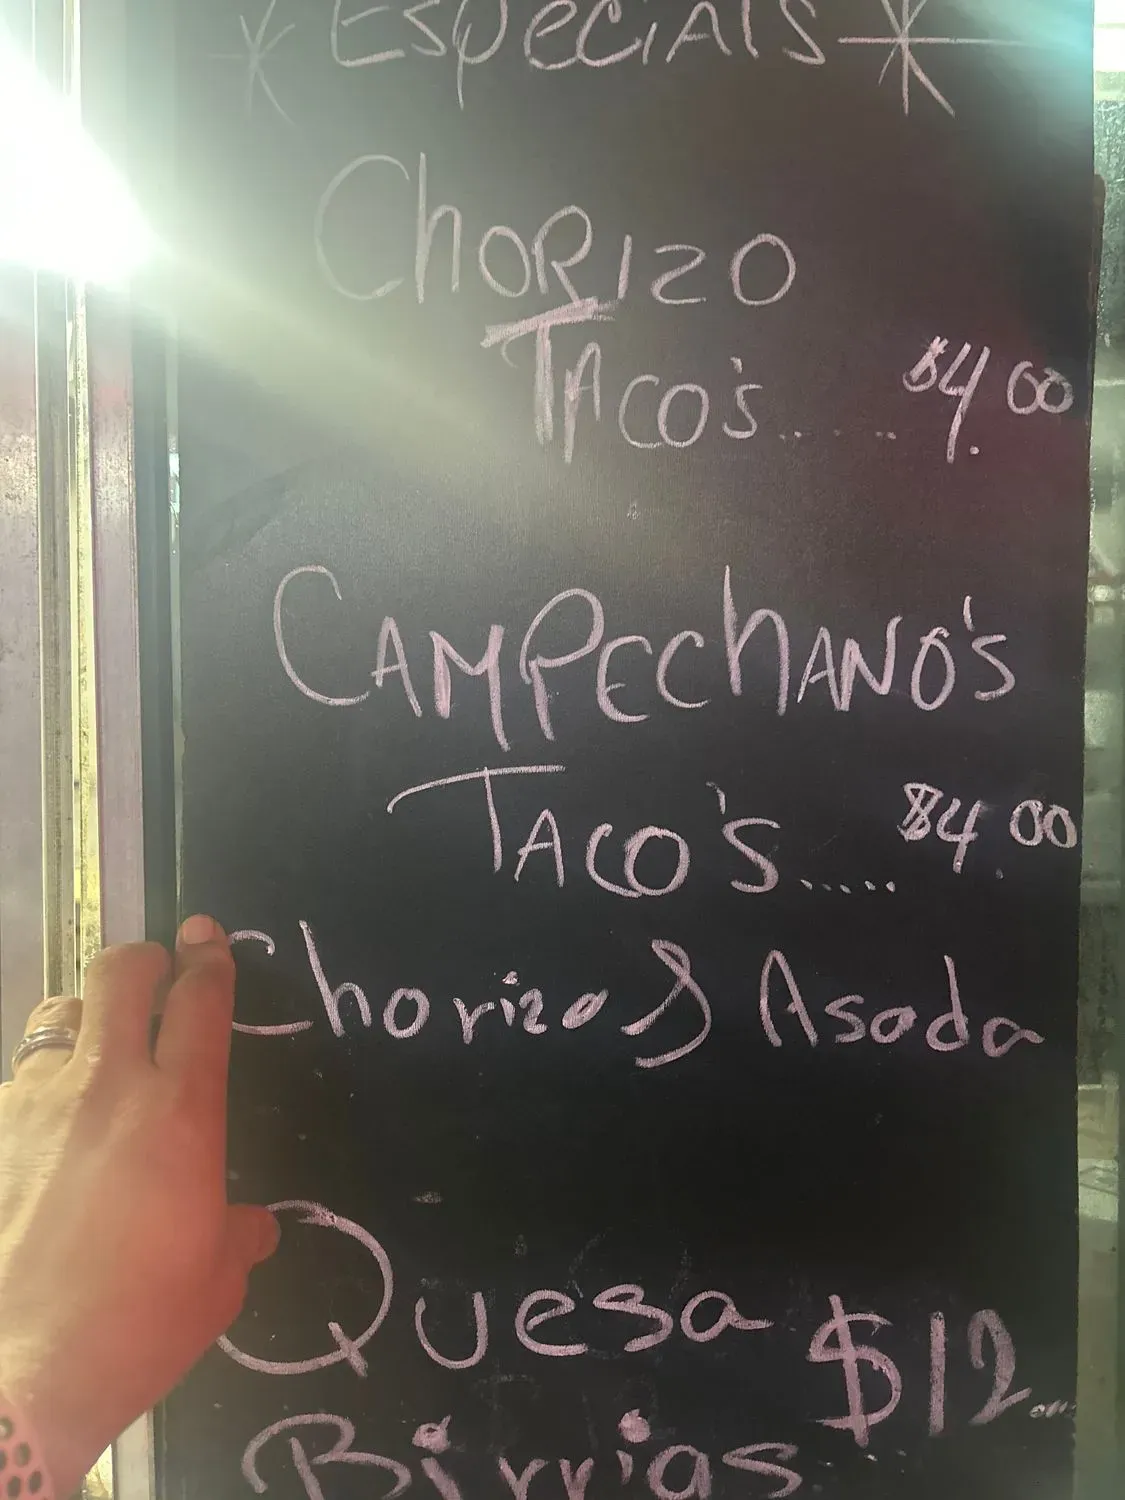 * Especials *
Chorizo
Taco's..... $4.00
Campechano's
Taco's..... $4.00
Chorizo & Asada
Quesa $12...
Birrias